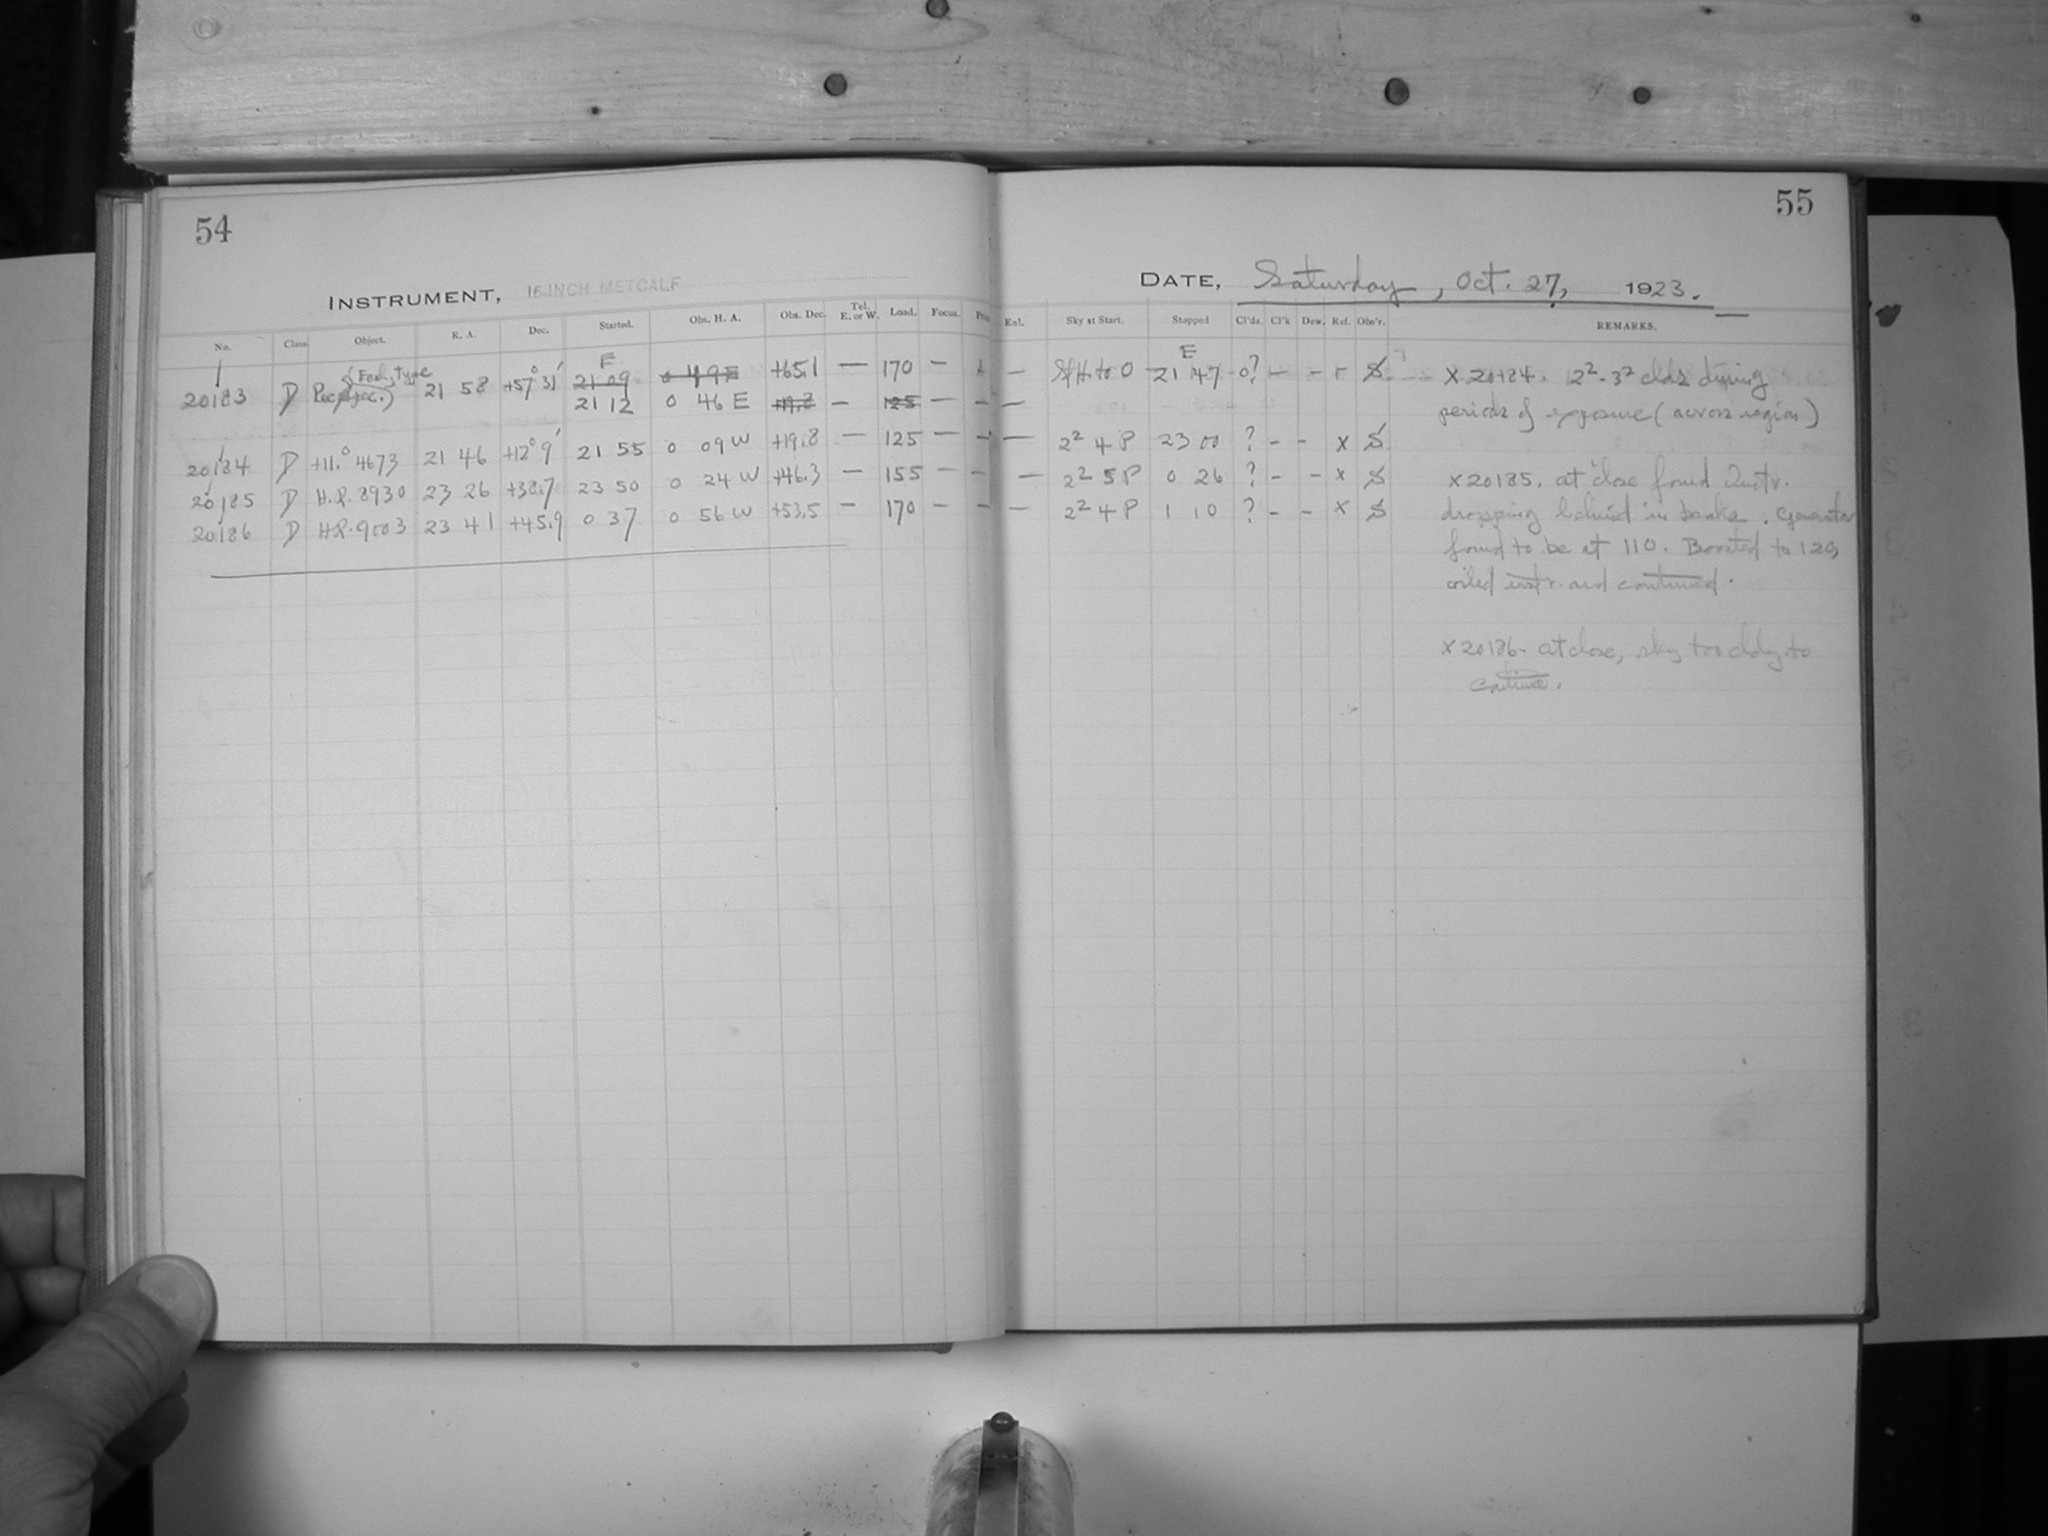 54
INSTRUMENT, 16-INCH METCALF
No. Class. Object. R. A. Dec. Started. Obs. H. A. Obs. Dec. Tel. E. or W. Load. Focus.
E
20183 D Pec. (Early type Spec.) 21 58 +57° 31' 21 09 0 49 E +65.1 — 170 —
21 12 0 46 E +19.8 — 125 — —
20184 D +11.° 4673 21 46 +12° 9' 21 55 0 09 W +19.8 — 125 — —
20185 D H.P. 8930 23 26 +38.7 23 50 0 24 W +46.3 — 155 — —
20186 D H.P. 9003 23 41 +45.9 0 37 0 56 W +53.5 — 170 — —
55
DATE, Saturday, Oct. 27, 1923.
Enl. Sky at Start. Stopped Cl'ds. Cl'k Dew. Ref. Obs'r. REMARKS.
E
— to 0 21 47 0? — — r S
— 2² 4 P 23 00 ? - - x S
— 2² 5 P 0 26 ? - - x S
— 2² 4 P 1 10 ? - - x S
X 20184. 2²-3² clds during
periods of exposure (across region)
X 20185. at close found Instr.
dropping behind in beats. Generator
found to be at 110. Boosted to 120,
oiled instr. and continued.
X 20186. at close, sky too cldy. to
continue.